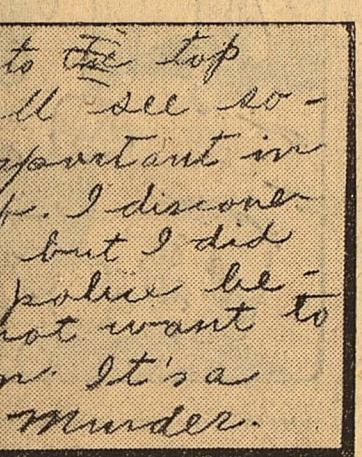 to the top
ll see so-
mportant in
f. I discover
but I did
police be-
not want to
n. It's a
Murder.